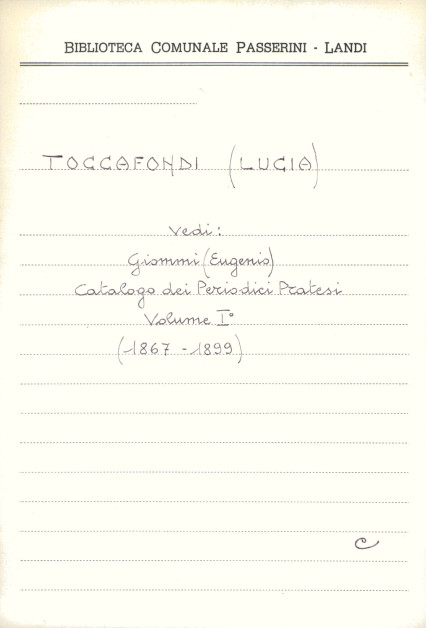 BIBLIOTECA COMUNALE PASSERINI - LANDI
TOCCAFONDI (LUCIA)
Vedi:
Giommi (Eugenio)
Catalogo dei Periodici Pratesi
Volume I°
(1867 - 1899)
C